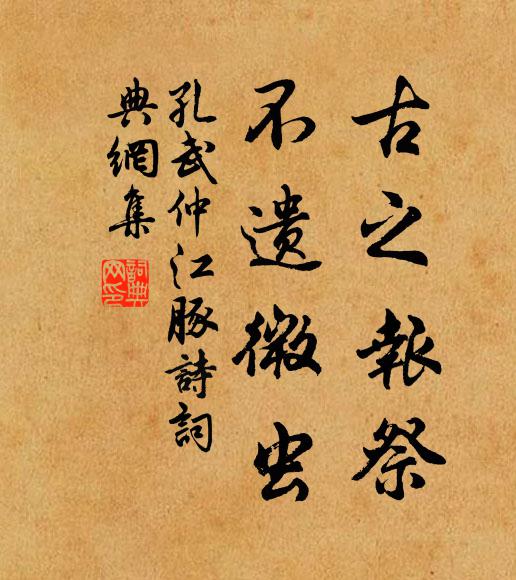 古之報祭
不遺微虫
孔武仲江豚詩詞
典網集
詞典
网印